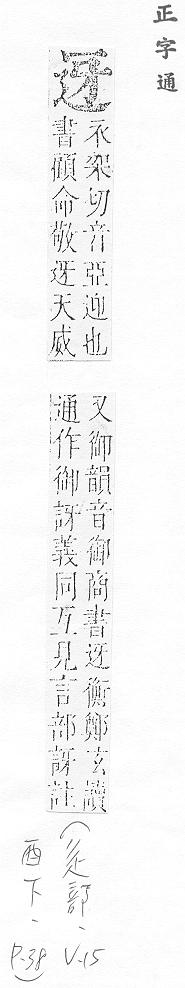 正字通
迓
衣架切音亞迎也
書顧命敬迓天威
又御韻音御商書迓衡鄭玄讀
通作御訝義同互見言部訝註
(辵部、V-15
酉下、P-38)